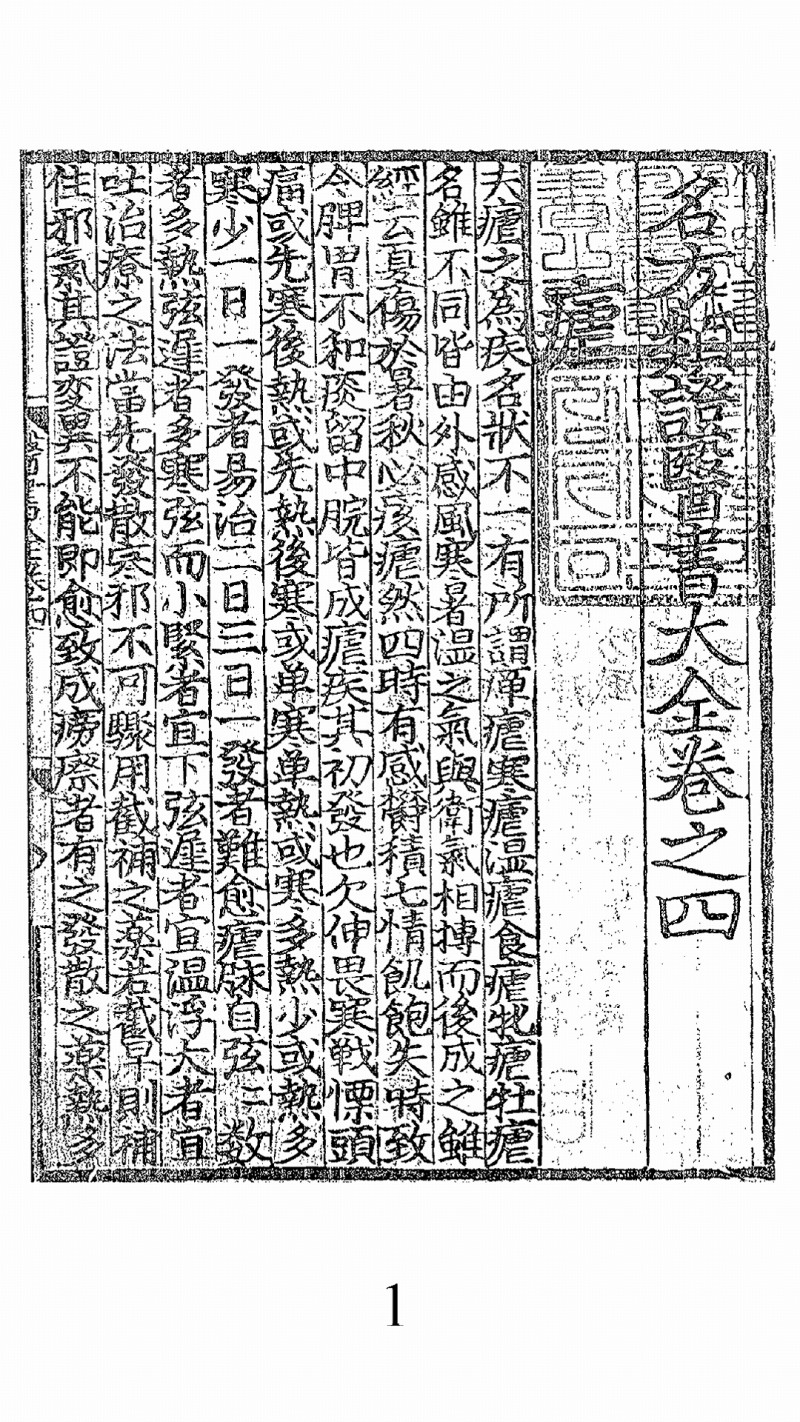 名方類證醫書大全卷之四
瘧
夫瘧之為疾名狀不一有所謂癉瘧寒瘧温瘧食瘧牝瘧牡瘧
名雖不同皆由外感風寒暑温之氣與衛氣相摶而後成之雖
經云夏傷於暑秋必痎瘧然四時有感欝積七情飢飽失時致
令脾胃不和痰留中脘皆成瘧疾其初發也欠伸畏寒戰慄頭
痛或先寒後熱或先熱後寒或单寒单熱或寒多熱少或熱多
寒少一日一發者易治二日三日一發者難愈瘧脉自弦〻数
者多熱弦遲者多寒弦而小緊者宜下弦遲者宜温浮大者宜
吐治療之法當先發散寒邪不可驟用截補之藥若截早則補
住邪氣其證変異不能即愈致成癆瘵者有之發散之藥熱多
1